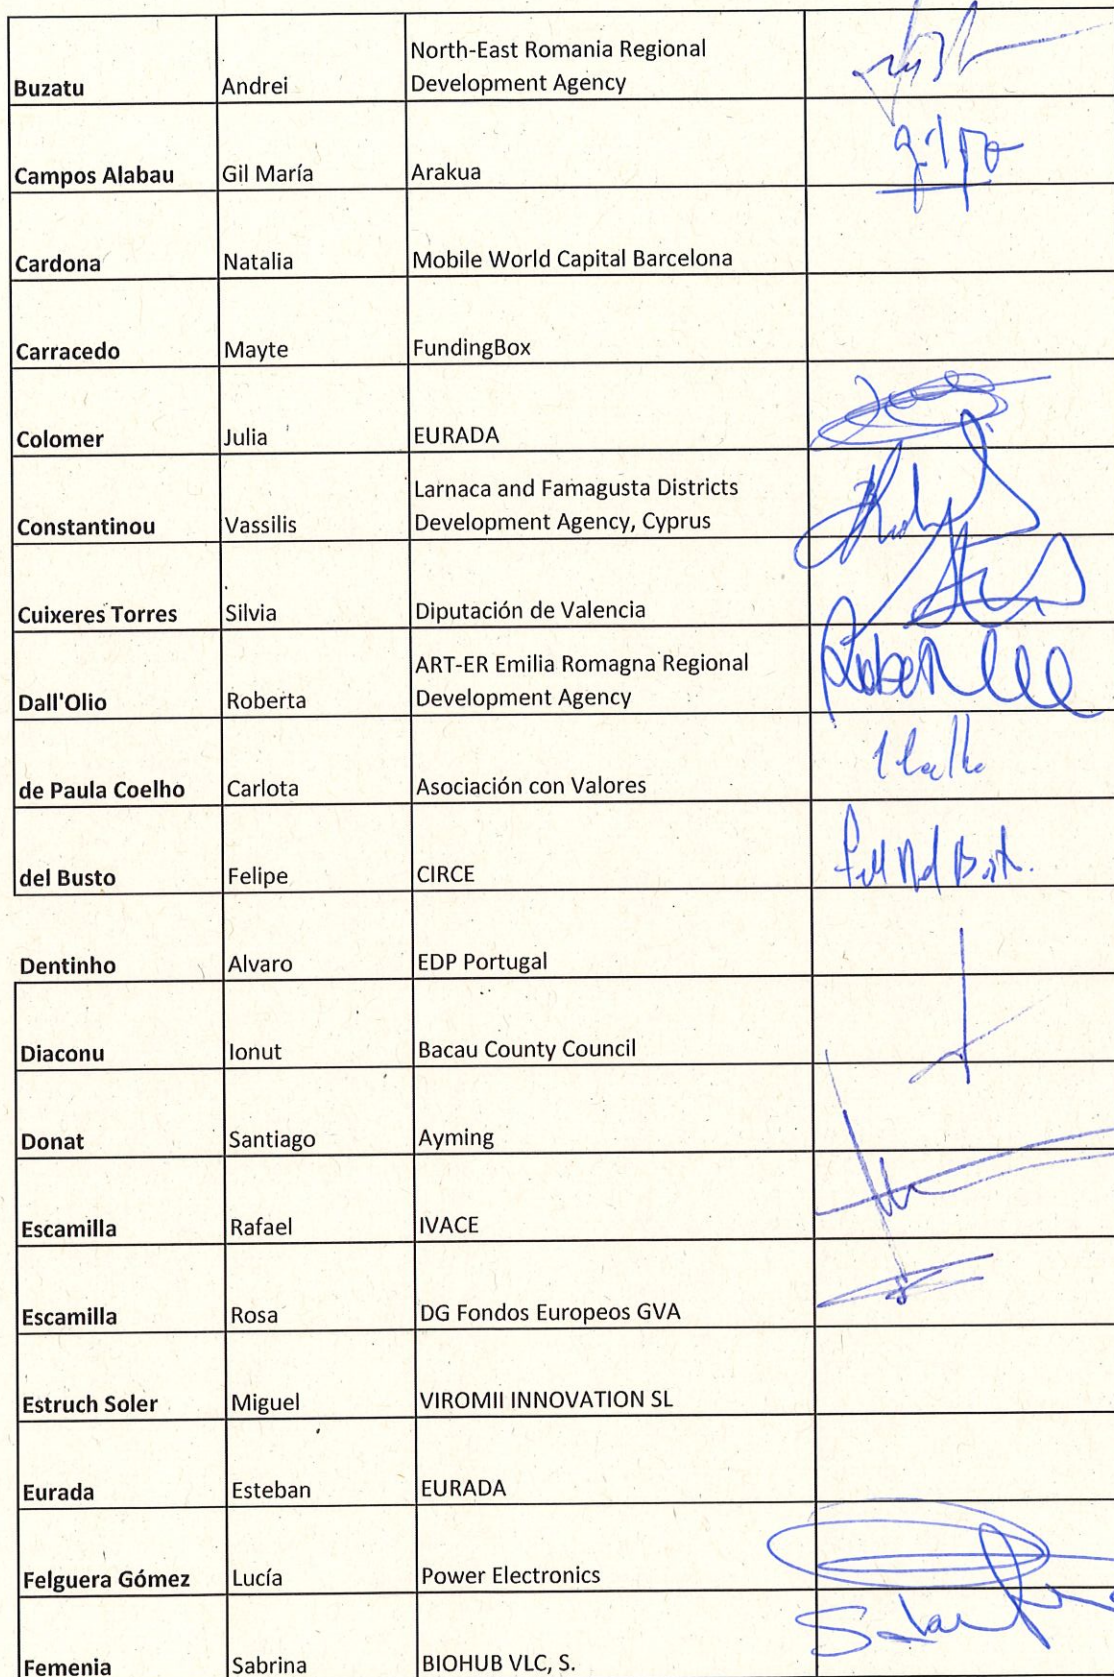 Buzatu Andrei North-East Romania Regional
Development Agency
Campos Alabau Gil María Arakua
Cardona Natalia Mobile World Capital Barcelona
Carracedo Mayte FundingBox
Colomer Julia EURADA
Constantinou Vassilis Larnaca and Famagusta Districts
Development Agency, Cyprus
Cuixeres Torres Silvia Diputación de Valencia
Dall'Olio Roberta ART-ER Emilia Romagna Regional
Development Agency
de Paula Coelho Carlota Asociación con Valores
del Busto Felipe CIRCE
Dentinho Alvaro EDP Portugal
Diaconu Ionut Bacau County Council
Donat Santiago Ayming
Escamilla Rafael IVACE
Escamilla Rosa DG Fondos Europeos GVA
Estruch Soler Miguel VIROMII INNOVATION SL
Eurada Esteban EURADA
Felguera Gómez Lucía Power Electronics
Femenia Sabrina BIOHUB VLC, S.